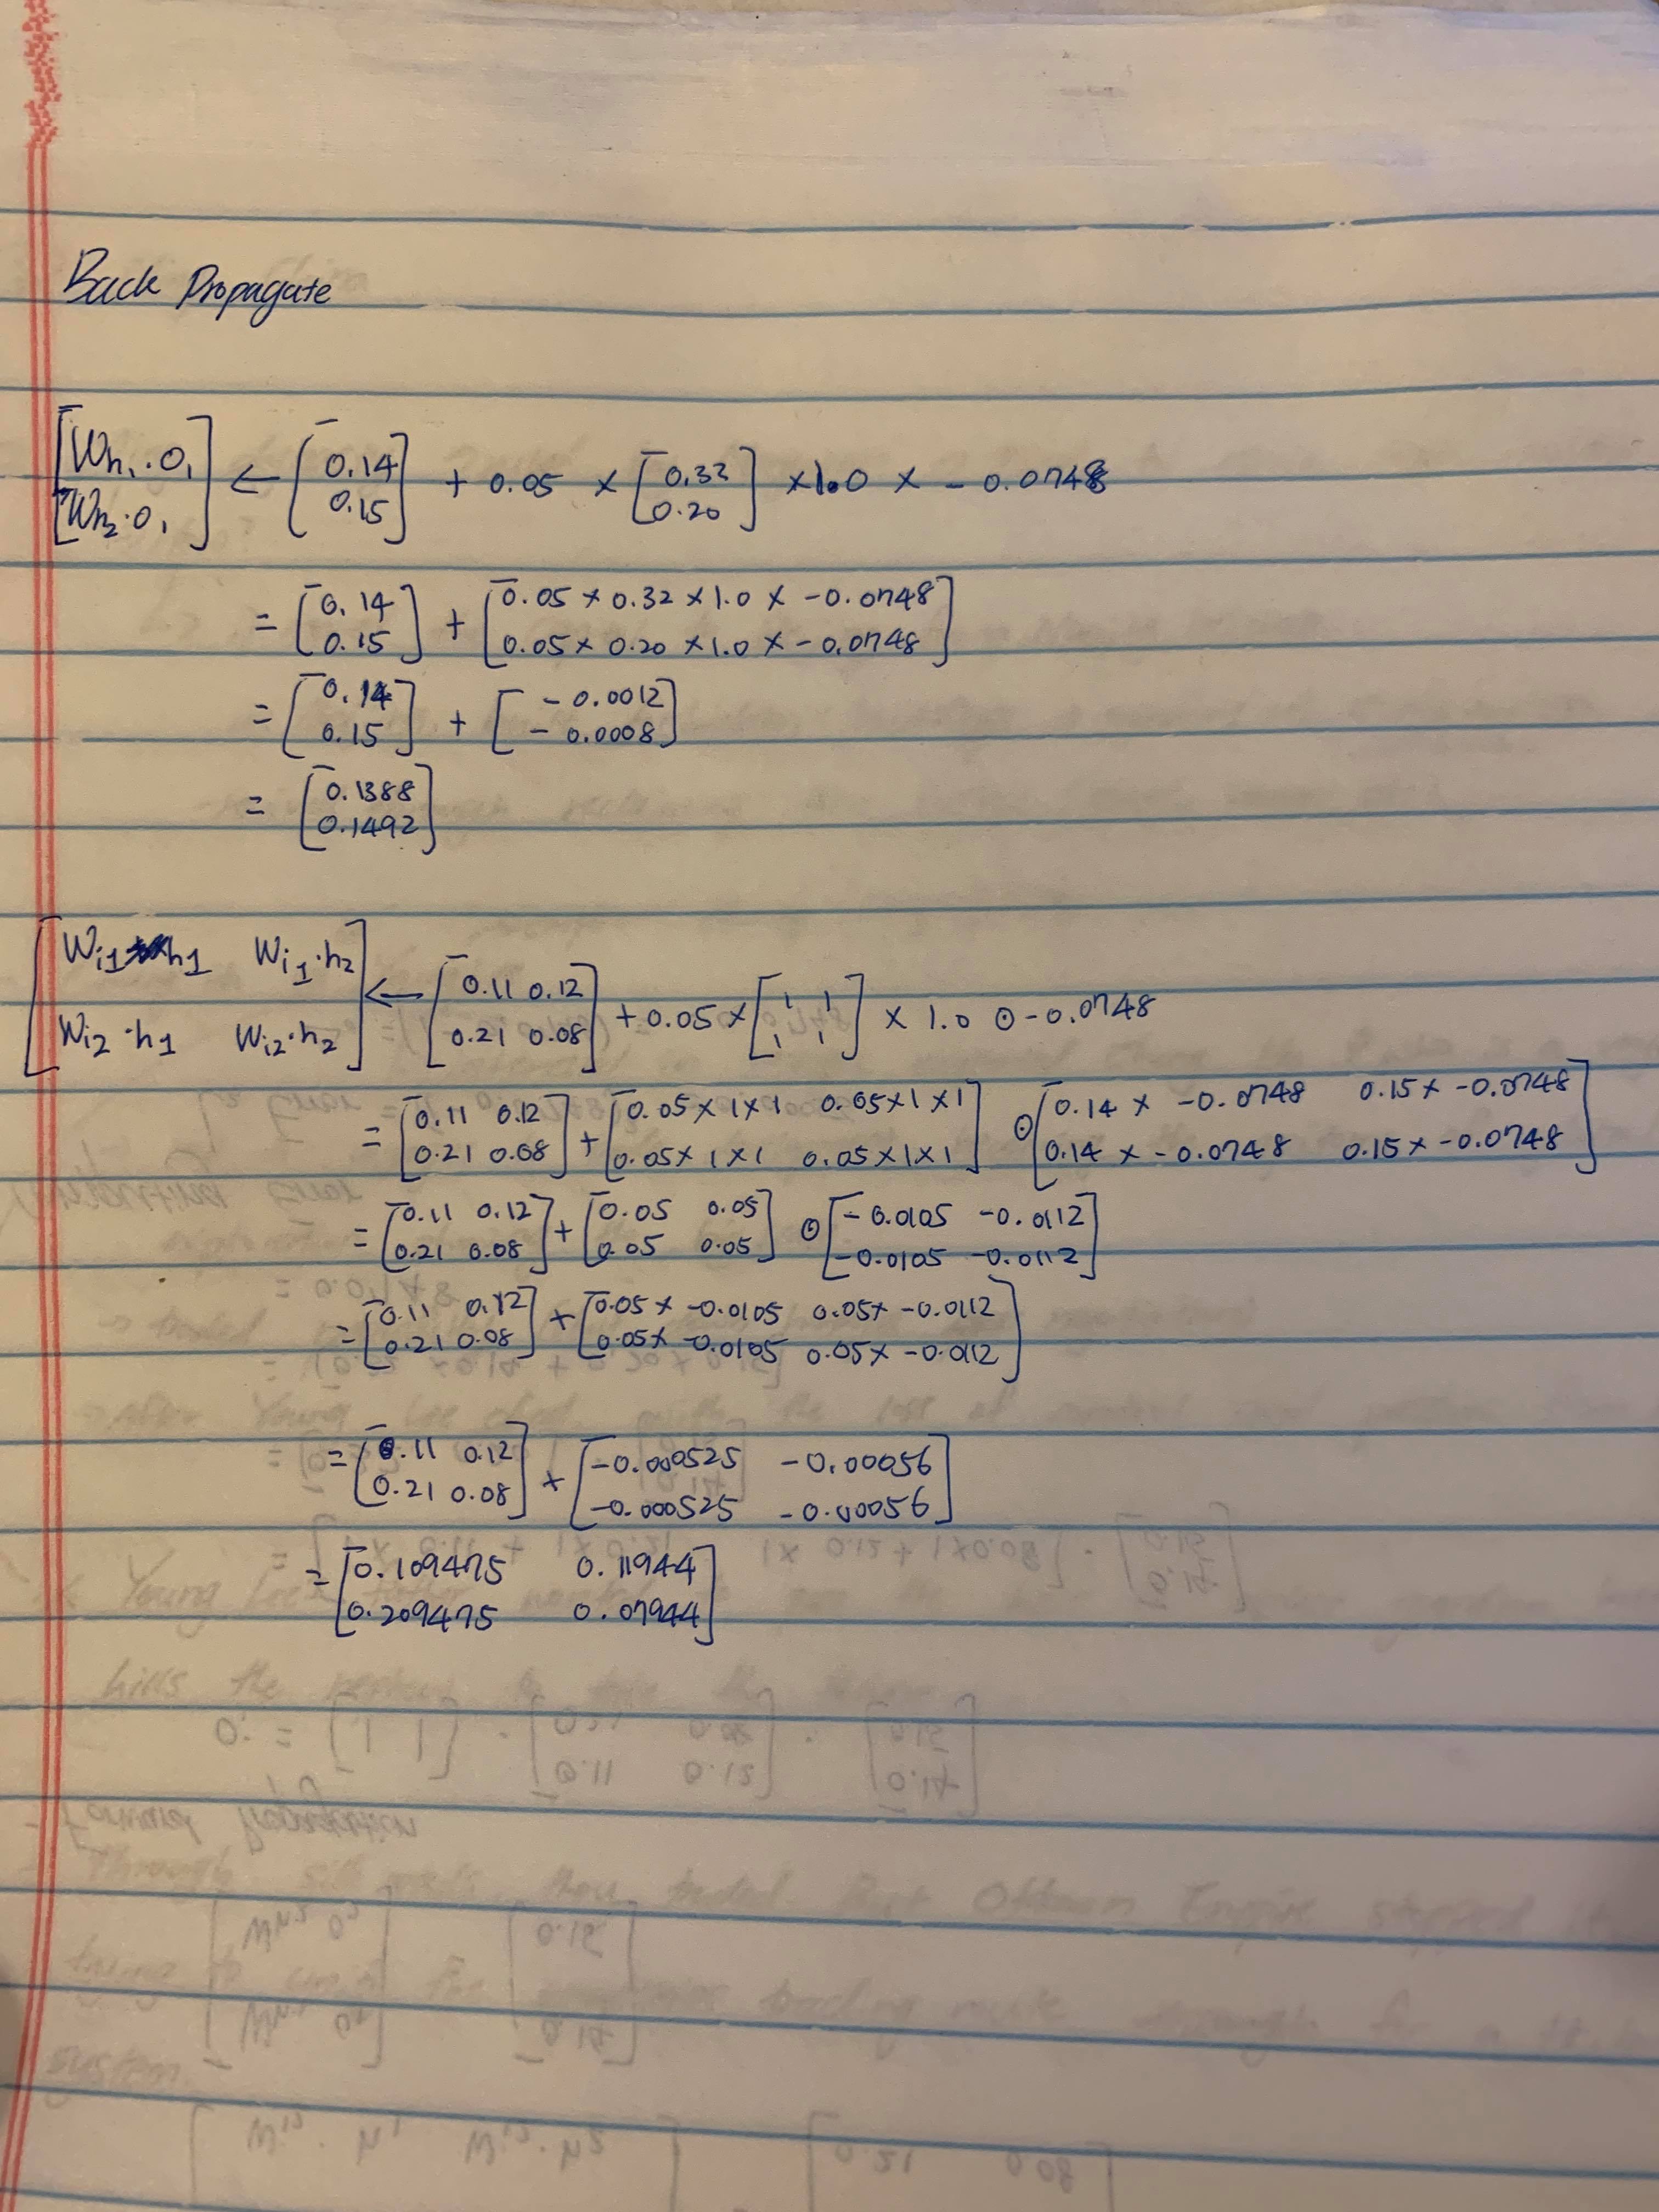 Back Propagate
[Wh₁·O₁; Wh₂·O₁] ← [0.14; 0.15] + 0.05 × [0.32; 0.20] × 1.0 × -0.0748
= [0.14; 0.15] + [0.05 × 0.32 × 1.0 × -0.0748; 0.05 × 0.20 × 1.0 × -0.0748]
= [0.14; 0.15] + [-0.0012; -0.0008]
= [0.1388; 0.1492]
[Wi1 h1 Wi1·h2; Wi2·h1 Wi2·h2] ← [0.11 0.12; 0.21 0.08] + 0.05 × [1 1; 1 1] × 1.0 ⊙ -0.0748
= [0.11 0.12; 0.21 0.08] + [0.05×1×1 0.05×1×1; 0.05×1×1 0.05×1×1] ⊙ [0.14 × -0.0748 0.15 × -0.0748; 0.14 × -0.0748 0.15 × -0.0748]
= [0.11 0.12; 0.21 0.08] + [0.05 0.05; 0.05 0.05] ⊙ [-0.0105 -0.0112; -0.0105 -0.0112]
= [0.11 0.12; 0.21 0.08] + [0.05 × -0.0105 0.05 × -0.0112; 0.05 × -0.0105 0.05 × -0.0112]
= [0.11 0.12; 0.21 0.08] + [-0.000525 -0.00056; -0.000525 -0.00056]
= [0.109475 0.11944; 0.209475 0.07944]